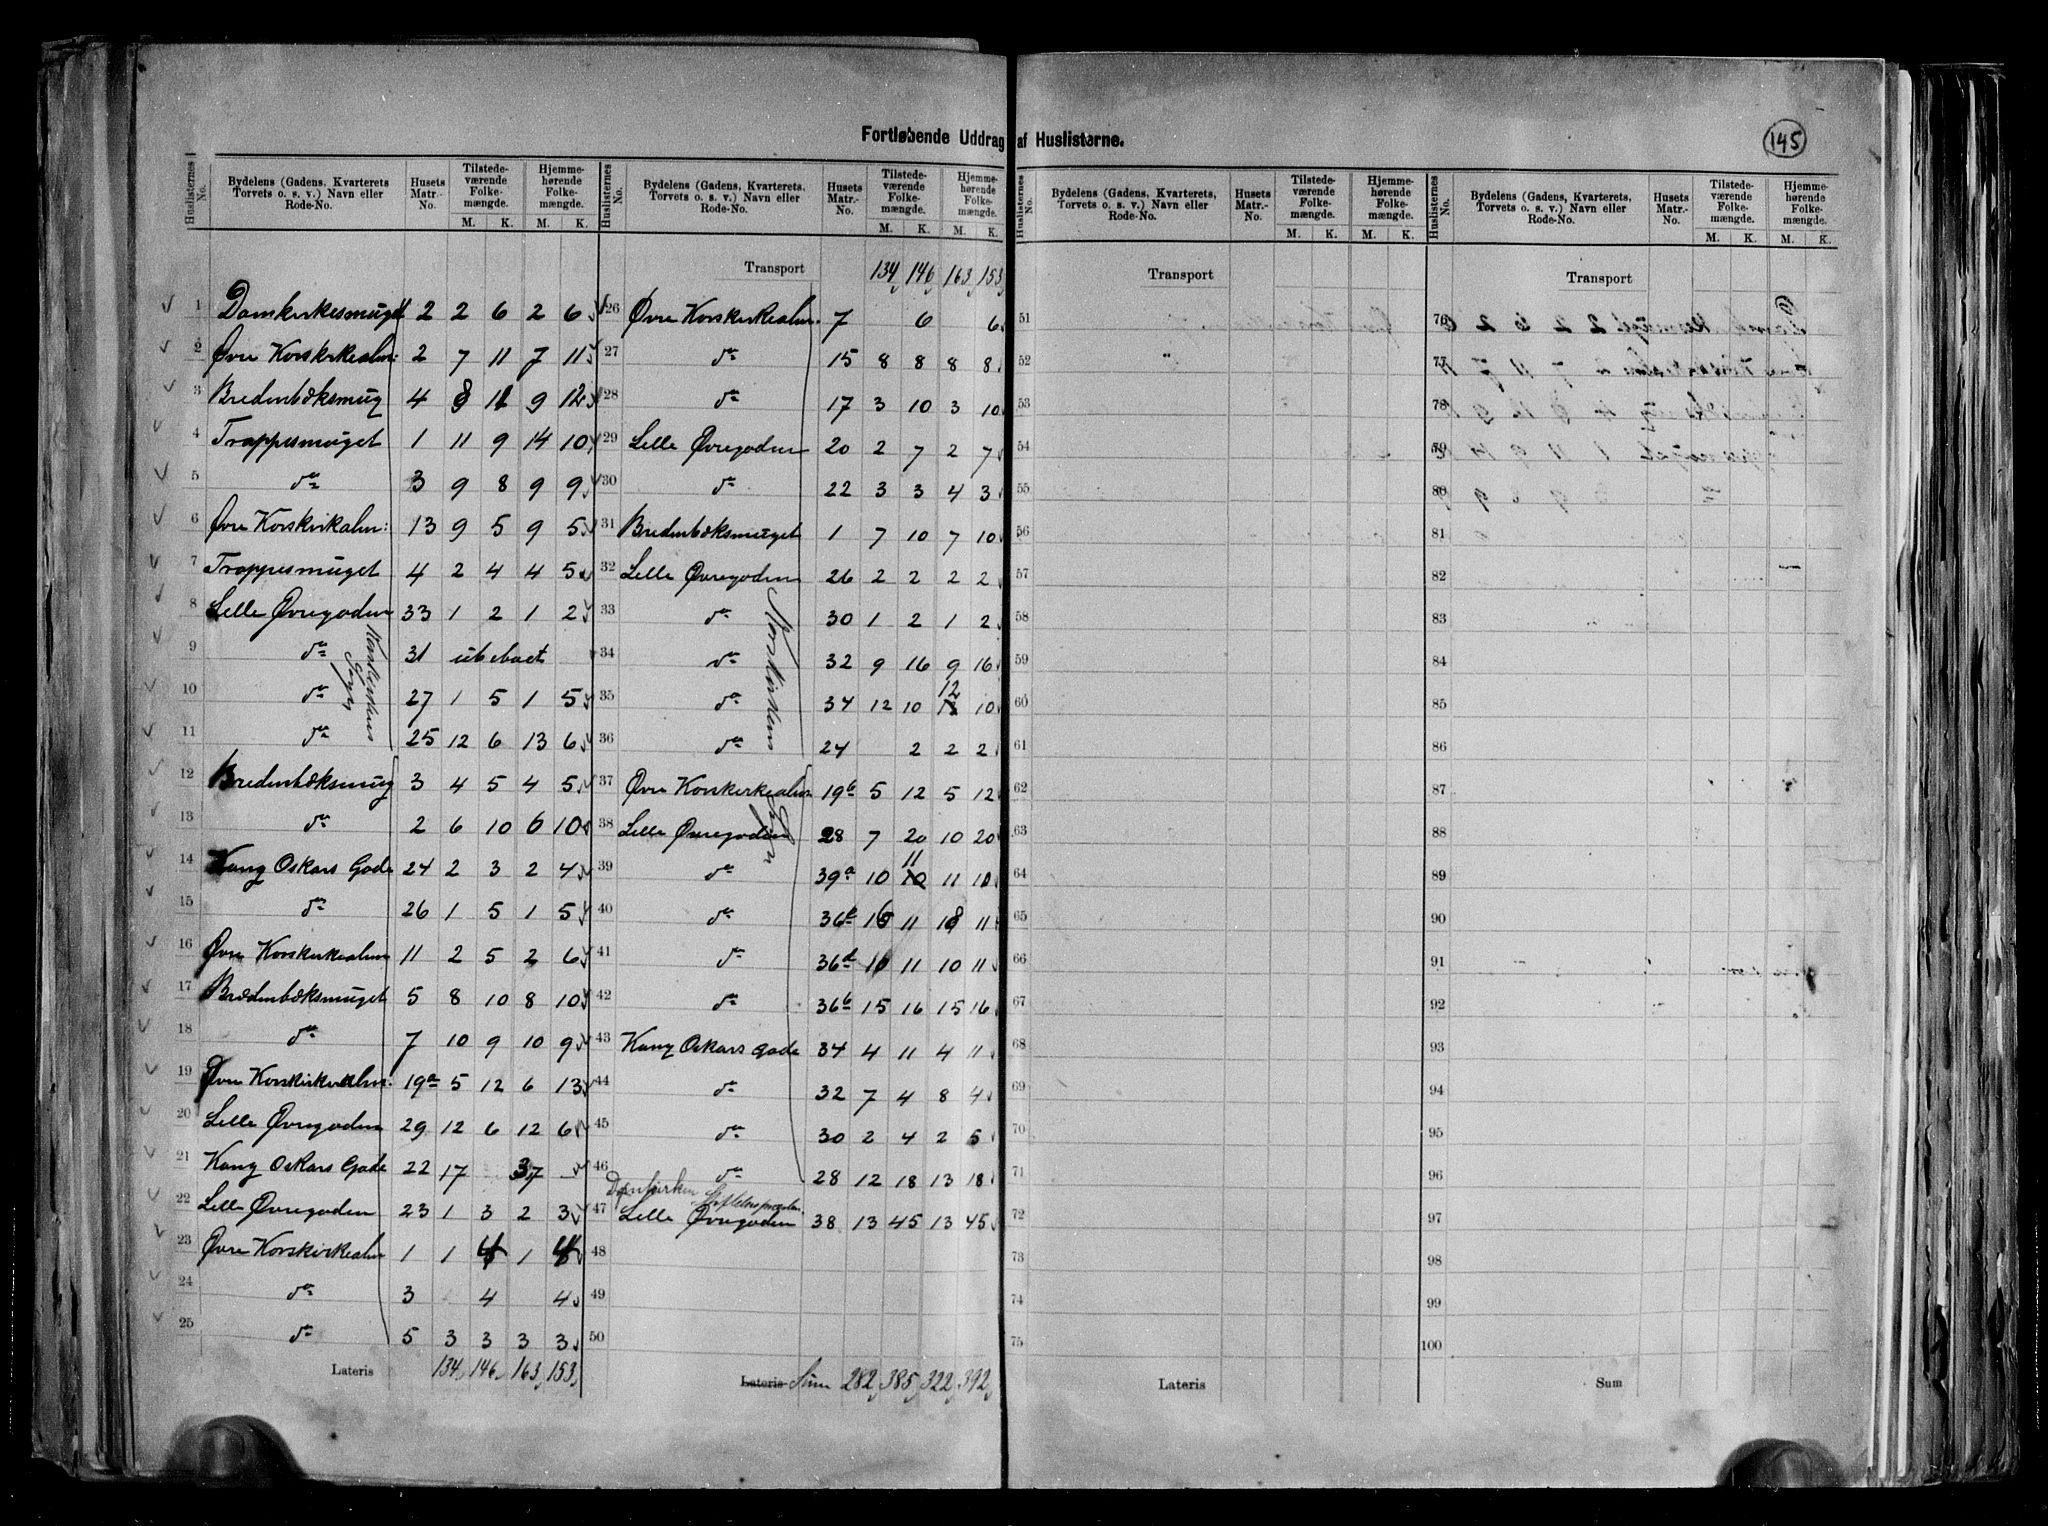 Fortløbende Uddrag af Huslisterne.
145
Huslisternes No. | Bydelens (Gadens, Kvarterets, Torvets o. s. v.) Navn eller Rode-No. | Husets Matr.-No. | Tilstedeværende Folkemængde. M. K. | Hjemmehørende Folkemængde. M. K.
1 Domkirkesmuget 2 2 6 2 6
2 Øvre Korskirkealm: 2 7 11 7 11
3 Bredenbæksmug 4 8 11 9 12
4 Trappesmuget 1 11 9 14 10
5 do 3 9 8 9 9
6 Øvre Korskirkalm: 13 9 5 9 5
7 Trappesmuget 4 2 4 4 5
8 Lille Øvregaden 33 1 2 1 2
9 do 31 ubeboet
10 do 27 1 5 1 5
11 do 25 12 6 13 6
Korskirkens Sogn
12 Bredenbæksmug 3 4 5 4 5
13 do 2 6 10 6 10
14 Kong Oskars Gade 24 2 3 2 4
15 do 26 1 5 1 5
16 Øvre Korskirkealm 11 2 5 2 6
17 Bredenbæksmuget 5 8 10 8 10
18 do 7 10 9 10 9
19 Øvre Korskirkealm: 19a 5 12 6 13
20 Lille Øvregaden 29 12 6 12 6
21 Kong Oskars Gade 22 17 37 -
22 Lille Øvregaden 23 1 3 2 3
23 Øvre Korskirkealm 1 1 4 1 4
24 do 3 4 4
25 do 5 3 3 3 3
Lateris 134 146 163 153
Huslisternes No. | Bydelens (Gadens, Kvarterets, Torvets o. s. v.) Navn eller Rode-No. | Husets Matr.-No. | Tilstedeværende Folkemængde. M. K. | Hjemmehørende Folkemængde. M. K.
Transport 134 146 163 153
26 Øvre Korskirkealm. 7 6 6
27 do 15 8 8 8 8
28 do 17 3 10 3 10
29 Lille Øvregaden 20 2 7 2 7
30 do 22 3 3 4 3
31 Bredenbæksmuget 1 7 10 7 10
32 Lille Øvregaden 26 2 2 2 2
33 do 30 1 2 1 2
34 do 32 9 16 9 16
35 do 34 12 10 12 10
36 do 24 2 2 2
Korskirkens Sogn
37 Øvre Korskirkealm 19b 5 12 5 12
38 Lille Øvregaden 28 7 20 10 20
39 do 39a 10 11 11 10
40 do 36 16 11 18 11
41 do 36d 10 11 10 11
42 do 36b 15 16 15 16
43 Kong Oskars Gade 34 4 11 4 11
44 do 32 7 4 8 4
45 do 30 2 4 2 5
46 do 28 12 18 13 18
Domkirken
47 Lille Øvregaden 38 13 45 13 45
48
49
50
Lateris Sum 282 385 322 392
Huslisternes No. | Bydelens (Gadens, Kvarterets, Torvets o. s. v.) Navn eller Rode-No. | Husets Matr.-No. | Tilstedeværende Folkemængde. M. K. | Hjemmehørende Folkemængde. M. K.
Transport
51
52
53
54
55
56
57
58
59
60
61
62
63
64
65
66
67
68
69
70
71
72
73
74
75
Lateris
Huslisternes No. | Bydelens (Gadens, Kvarterets, Torvets o. s. v.) Navn eller Rode-No. | Husets Matr.-No. | Tilstedeværende Folkemængde. M. K. | Hjemmehørende Folkemængde. M. K.
Transport
76
77
78
79
80
81
82
83
84
85
86
87
88
89
90
91
92
93
94
95
96
97
98
99
100
Sum